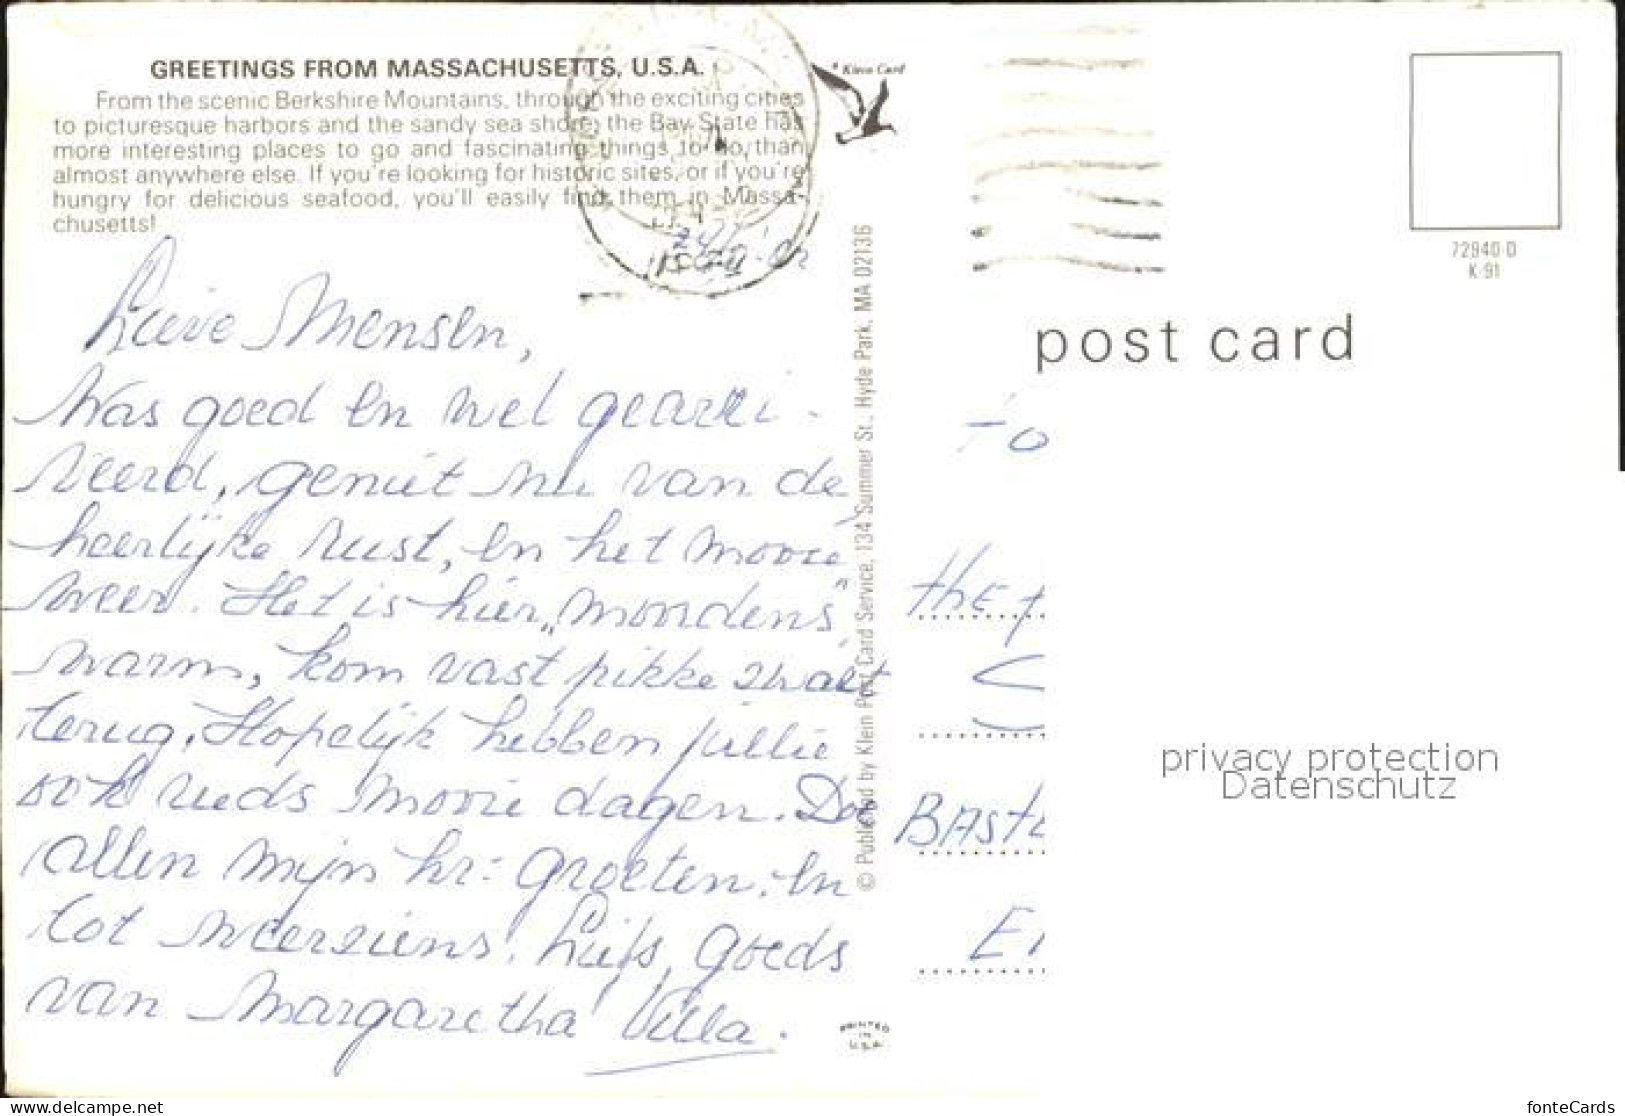 GREETINGS FROM MASSACHUSETTS, U.S.A.
From the scenic Berkshire Mountains, through the exciting cities
to picturesque harbors and the sandy sea shore, the Bay State has
more interesting places to go and fascinating things to do, than
almost anywhere else. If you're looking for historic sites, or if you're
hungry for delicious seafood, you'll easily find them in Massa-
chusetts!
Lieve Mensen,
Was goed en wel gearri-
veerd, geniet nu van de
heerlijke rust, en het mooie
weer. Het is hier „moordens"
warm, kom vast pikke zwart
terug. Hopelijk hebben jullie
ook reeds mooie dagen. Doe
allen mijn hr: groeten, en
tot weerziens. Liefs, goeds
van Margaretha Villa.
© Published by Klein Post Card Service, 134 Summer St., Hyde Park, MA 02136
Klein Card
PRINTED
IN
U.S.A.
72940-D
K-91
post card
to
the
BAST
E
privacy protection
Datenschutz
https://www.delcampe.net
fonteCards